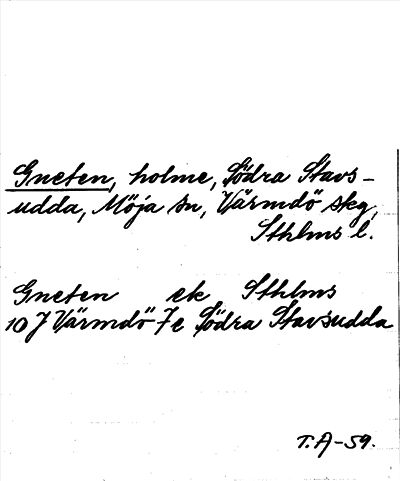 Gneten, holme, Södra Stavs-
udda, Möja sn, Värmdö skg,
Sthlms l.
Gneten ek Sthlms
10 J Värmdö 7e Södra Stavsudda
T.A-59.